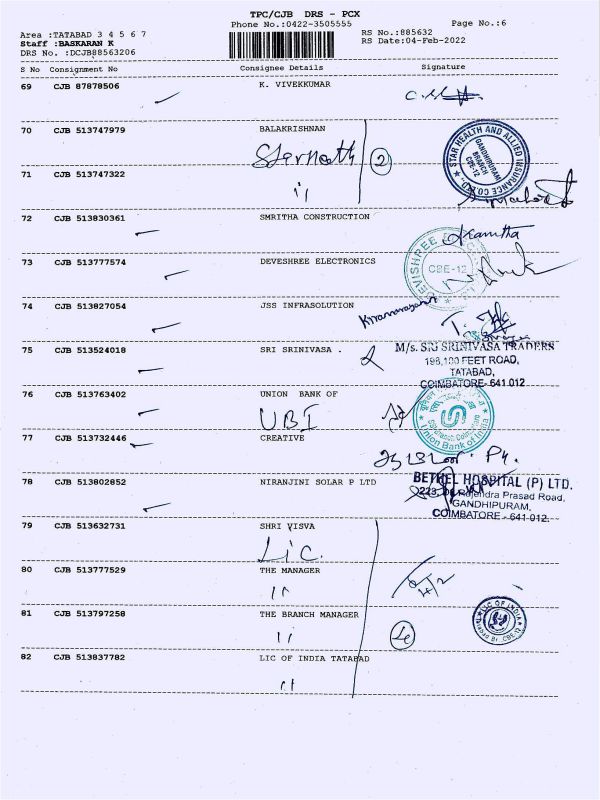 TPC/CJB DRS - PCX
Phone No.:0422-3505555
Page No.:6
Area :TATABAD 3 4 5 6 7
Staff :BASKARAN K
DRS No. :DCJB88563206
RS No.:885632
RS Date:04-Feb-2022
S No Consignment No Consignee Details Signature
69 CJB 87878506 K. VIVEKKUMAR
70 CJB 513747979 BALAKRISHNAN
2
STAR HEALTH AND ALLIED INSURANCE CO. LTD.
GANDHIPURAM BRANCH CBE-12
71 CJB 513747322
72 CJB 513830361 SMRITHA CONSTRUCTION
73 CJB 513777574 DEVESHREE ELECTRONICS
DEVISHREE
CBE-12
74 CJB 513827054 JSS INFRASOLUTION
75 CJB 513524018 SRI SRINIVASA .
M/s. SRI SRINIVASA TRADERS
198,100 FEET ROAD,
TATABAD,
COIMBATORE- 641 012
76 CJB 513763402 UNION BANK OF
UBI
Union Bank of India
77 CJB 513732446 CREATIVE
78 CJB 513802852 NIRANJINI SOLAR P LTD
BETHEL HOSPITAL (P) LTD.
223, Dr. Rajendra Prasad Road,
GANDHIPURAM,
COIMBATORE - 641 012.
79 CJB 513632731 SHRI VISVA
Lic.
80 CJB 513777529 THE MANAGER
11
4/2
81 CJB 513797258 THE BRANCH MANAGER
11
LIC OF INDIA
82 CJB 513837782 LIC OF INDIA TATABAD
11